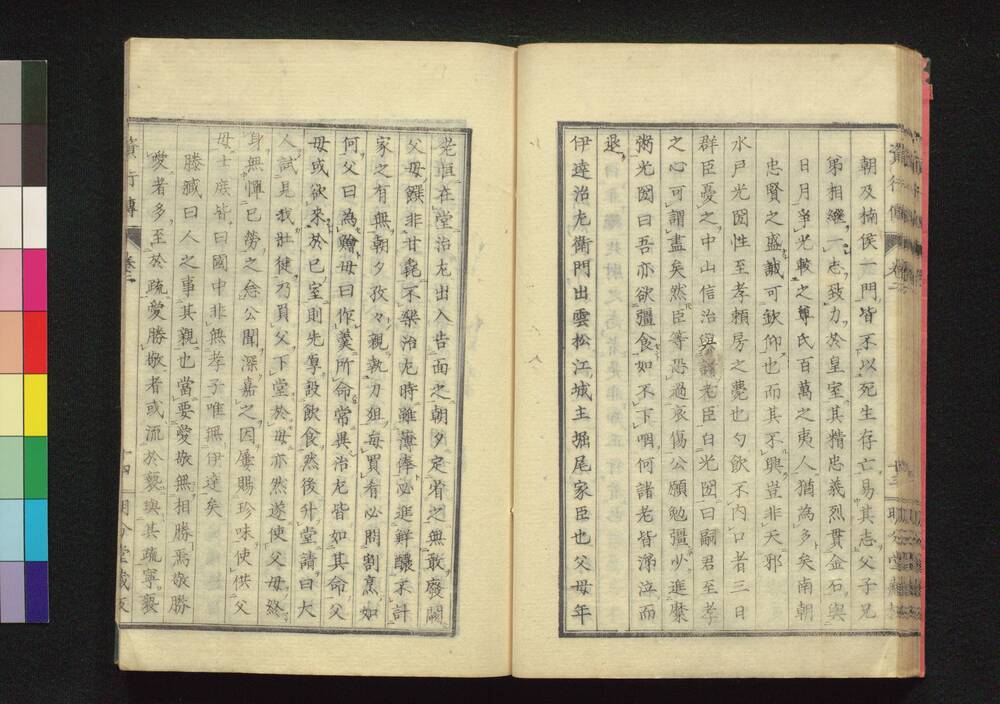 朝及楠侯一門皆不以死生存亡易其志父子兄
弟相繼一志致力於皇室其精忠義烈貫金石與
日月爭光較之尊氏百萬之夷人猶為多矣南朝
忠賢之盛誠可欽仰也而其不興豈非天邪
水戶光圀性至孝賴房之薨也勺飲不內口者三日
群臣憂之中山信治與諸老臣白光圀曰嗣君至孝
之心可謂盡矣然臣等恐過哀傷公願勉彊少進糜
粥光圀曰吾亦欲彊食如不下咽何諸老皆涕泣而
退
伊達治左衛門出雲松江城主堀尾家臣也父母年
老恒在堂治左出入告面之朝夕定省之無敢廢闕
父母饌非甘毳不樂治左時雖薄俸必進鮮醲不計
家之有無朝夕孜々親執刀俎每買肴必問割烹如
何父曰為鱠母曰作羹所命常異治左皆如其命父
母或欲來於已室則先專設飲食然後升堂請曰大
人試見我壯健乃負父下堂於母亦然遂使父母終
身無憚已勞之念公聞深嘉之因屢賜珍味使供父
母士庶皆曰國中非無孝子唯無伊達矣
滕臧曰人之事其親也當要愛敬無相勝焉敬勝
愛者多至於疏愛勝敬者或流於褻與其疏寧褻
行傳 卷二 十四